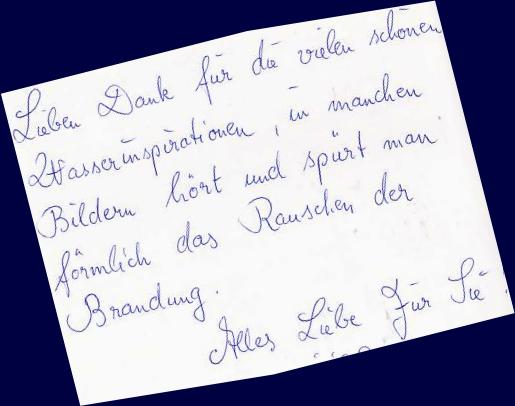 Lieben Dank für die vielen schönen
Wasserinspirationen, in manchen
Bildern hört und spürt man
förmlich das Rauschen der
Brandung.
Alles Liebe für Sie